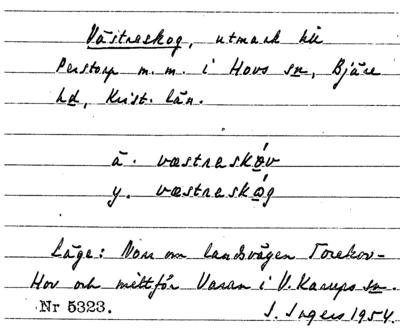 Västreskog, utmark till
Perstorp m.m. i Hovs sn, Bjäre
hd, Krist. län.
ä. væstreskǿv
y. væstreskǫ́g
Läge: Norr om landsvägen Torekov-
Hov och mittför Varan i V. Karups sn.
Nr 5323. I. Ingers 1954.